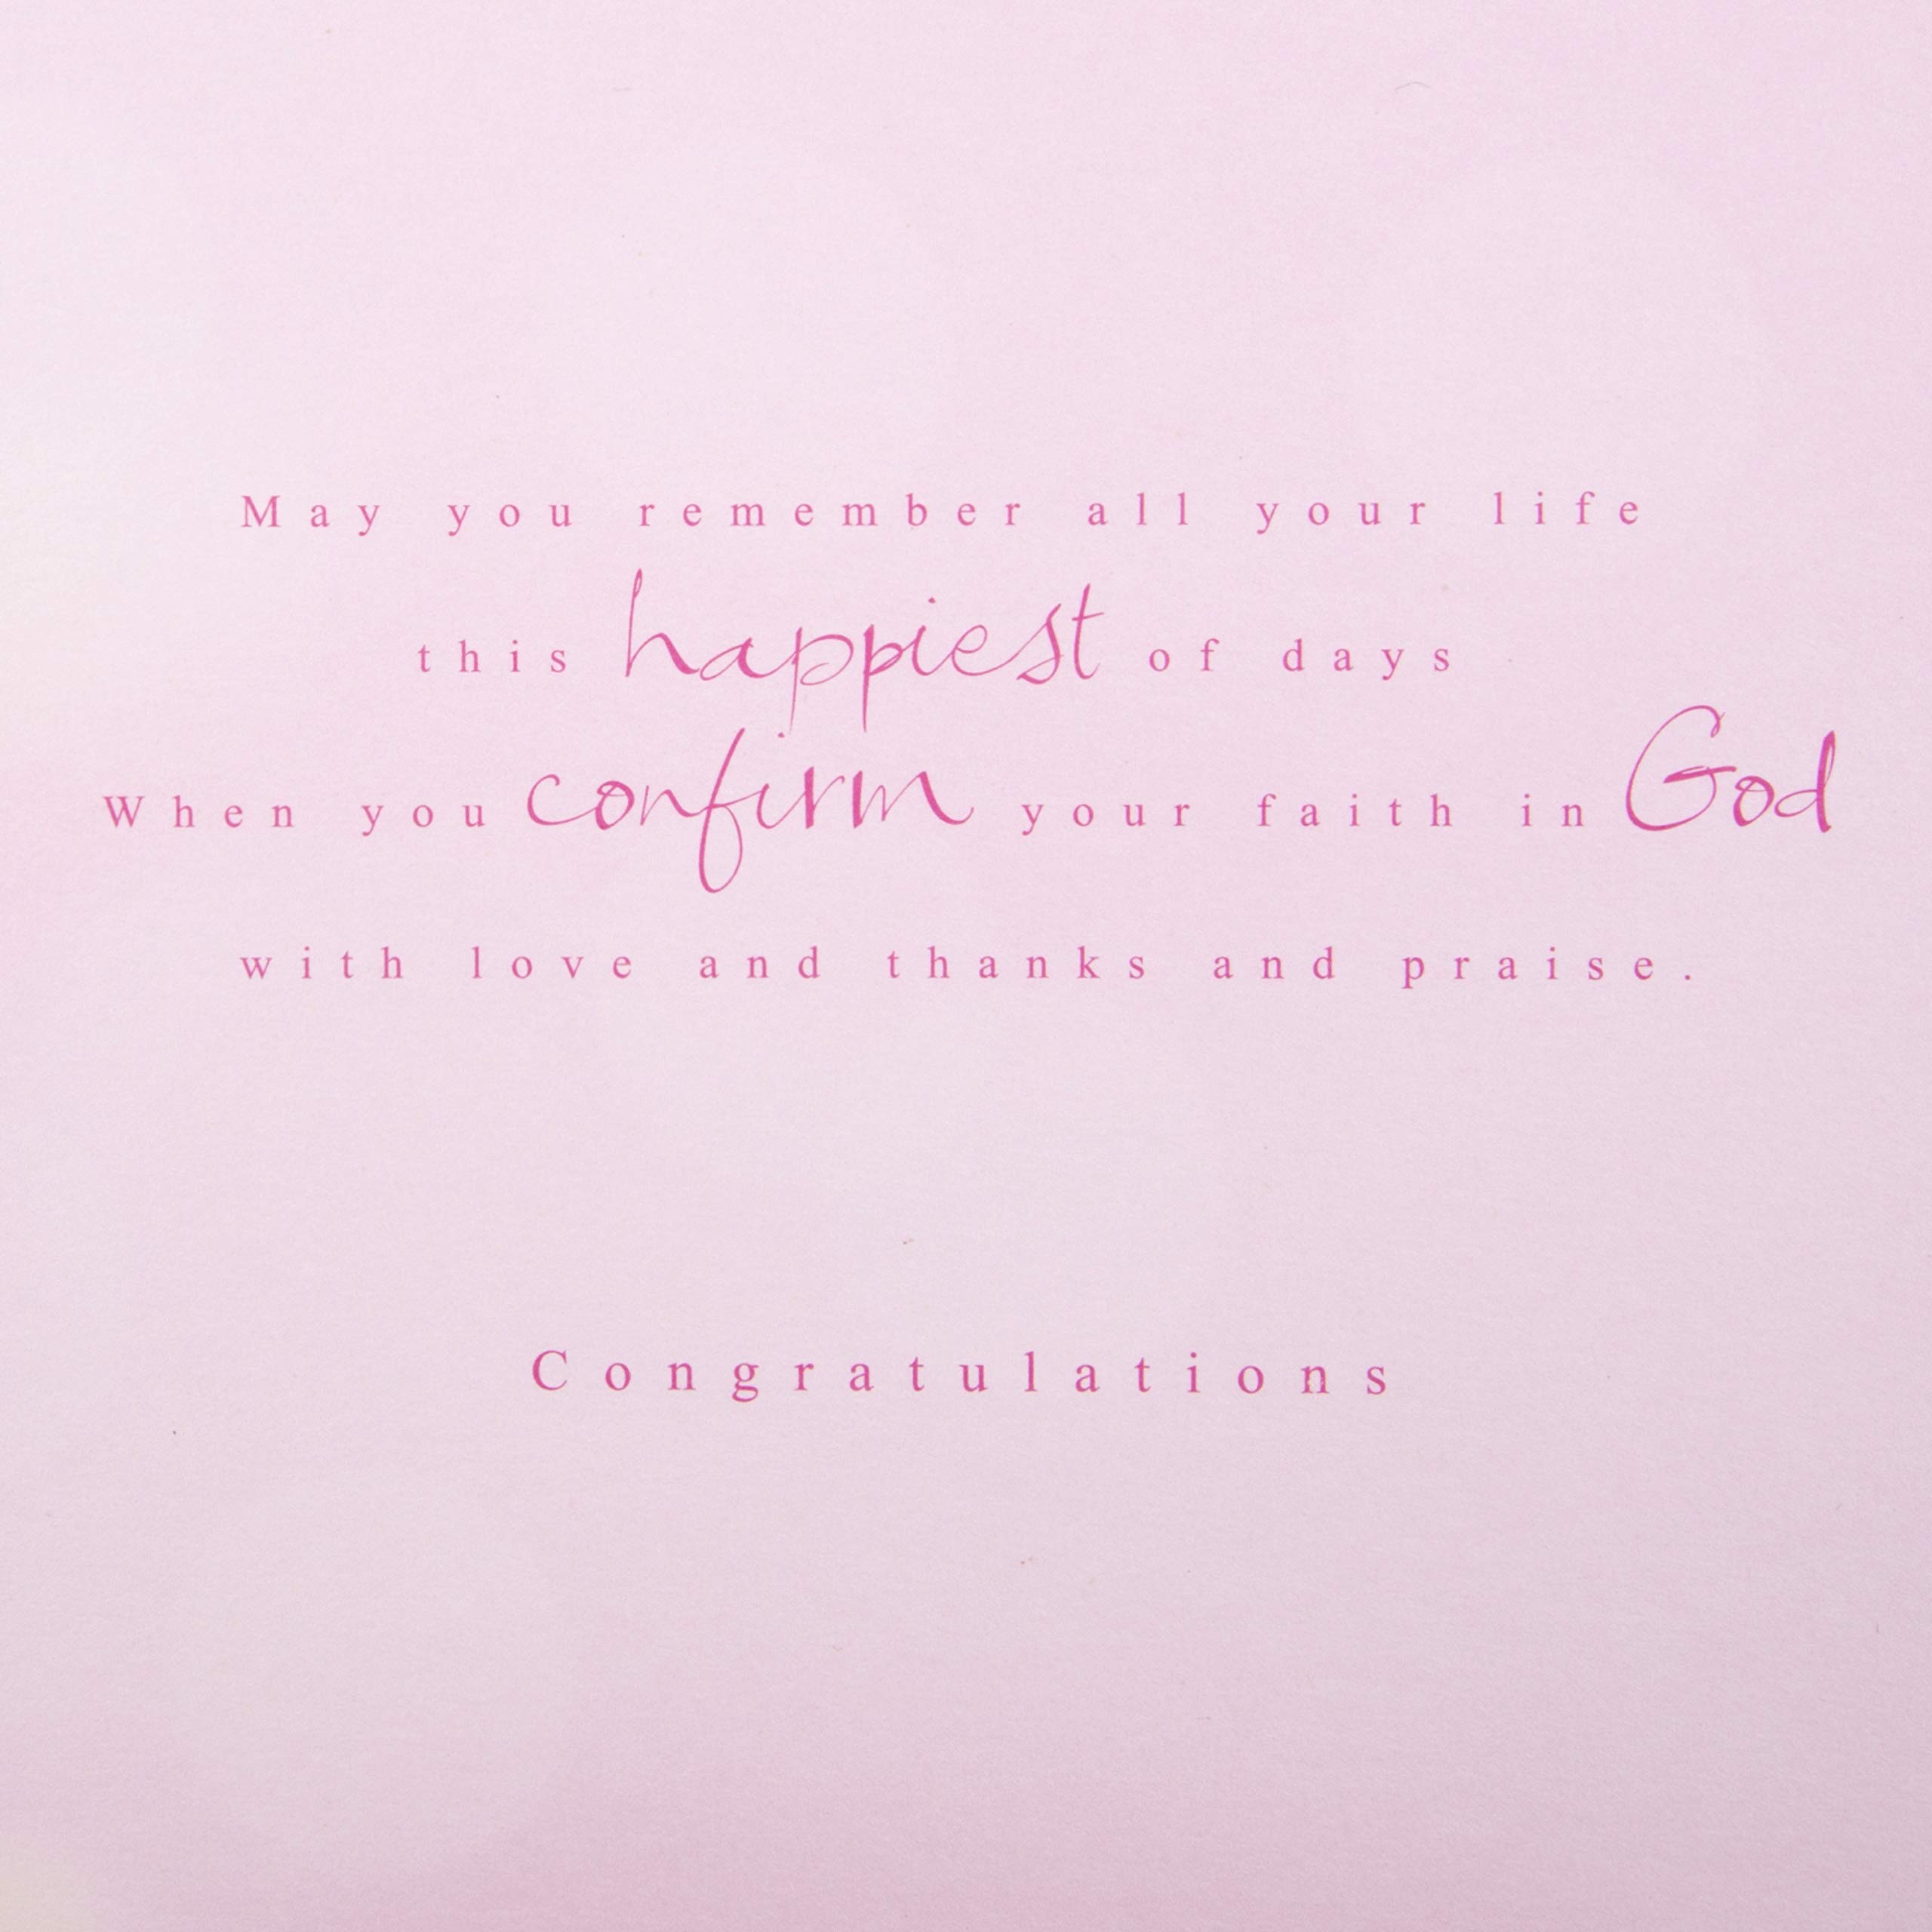 May you remember all your life
this happiest of days
When you confirm your faith in God
with love and thanks and praise.
Congratulations